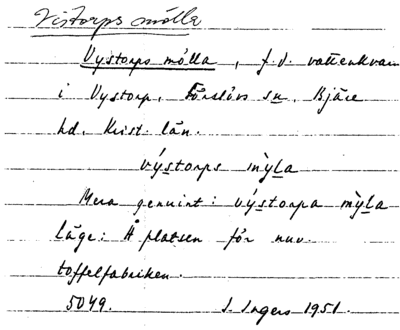 Vistorps mölla
Vystorps mölla, f.d. vattenkvarn
i Vystorp, Förslövs sn, Bjäre
hd, Krist. län.
vý̀storps mỳla
Mera genuint: vý̀storpa mỳla
Läge: Å platsen för nuv.
toffelfabriken.
5049. I. Ingers 1951.